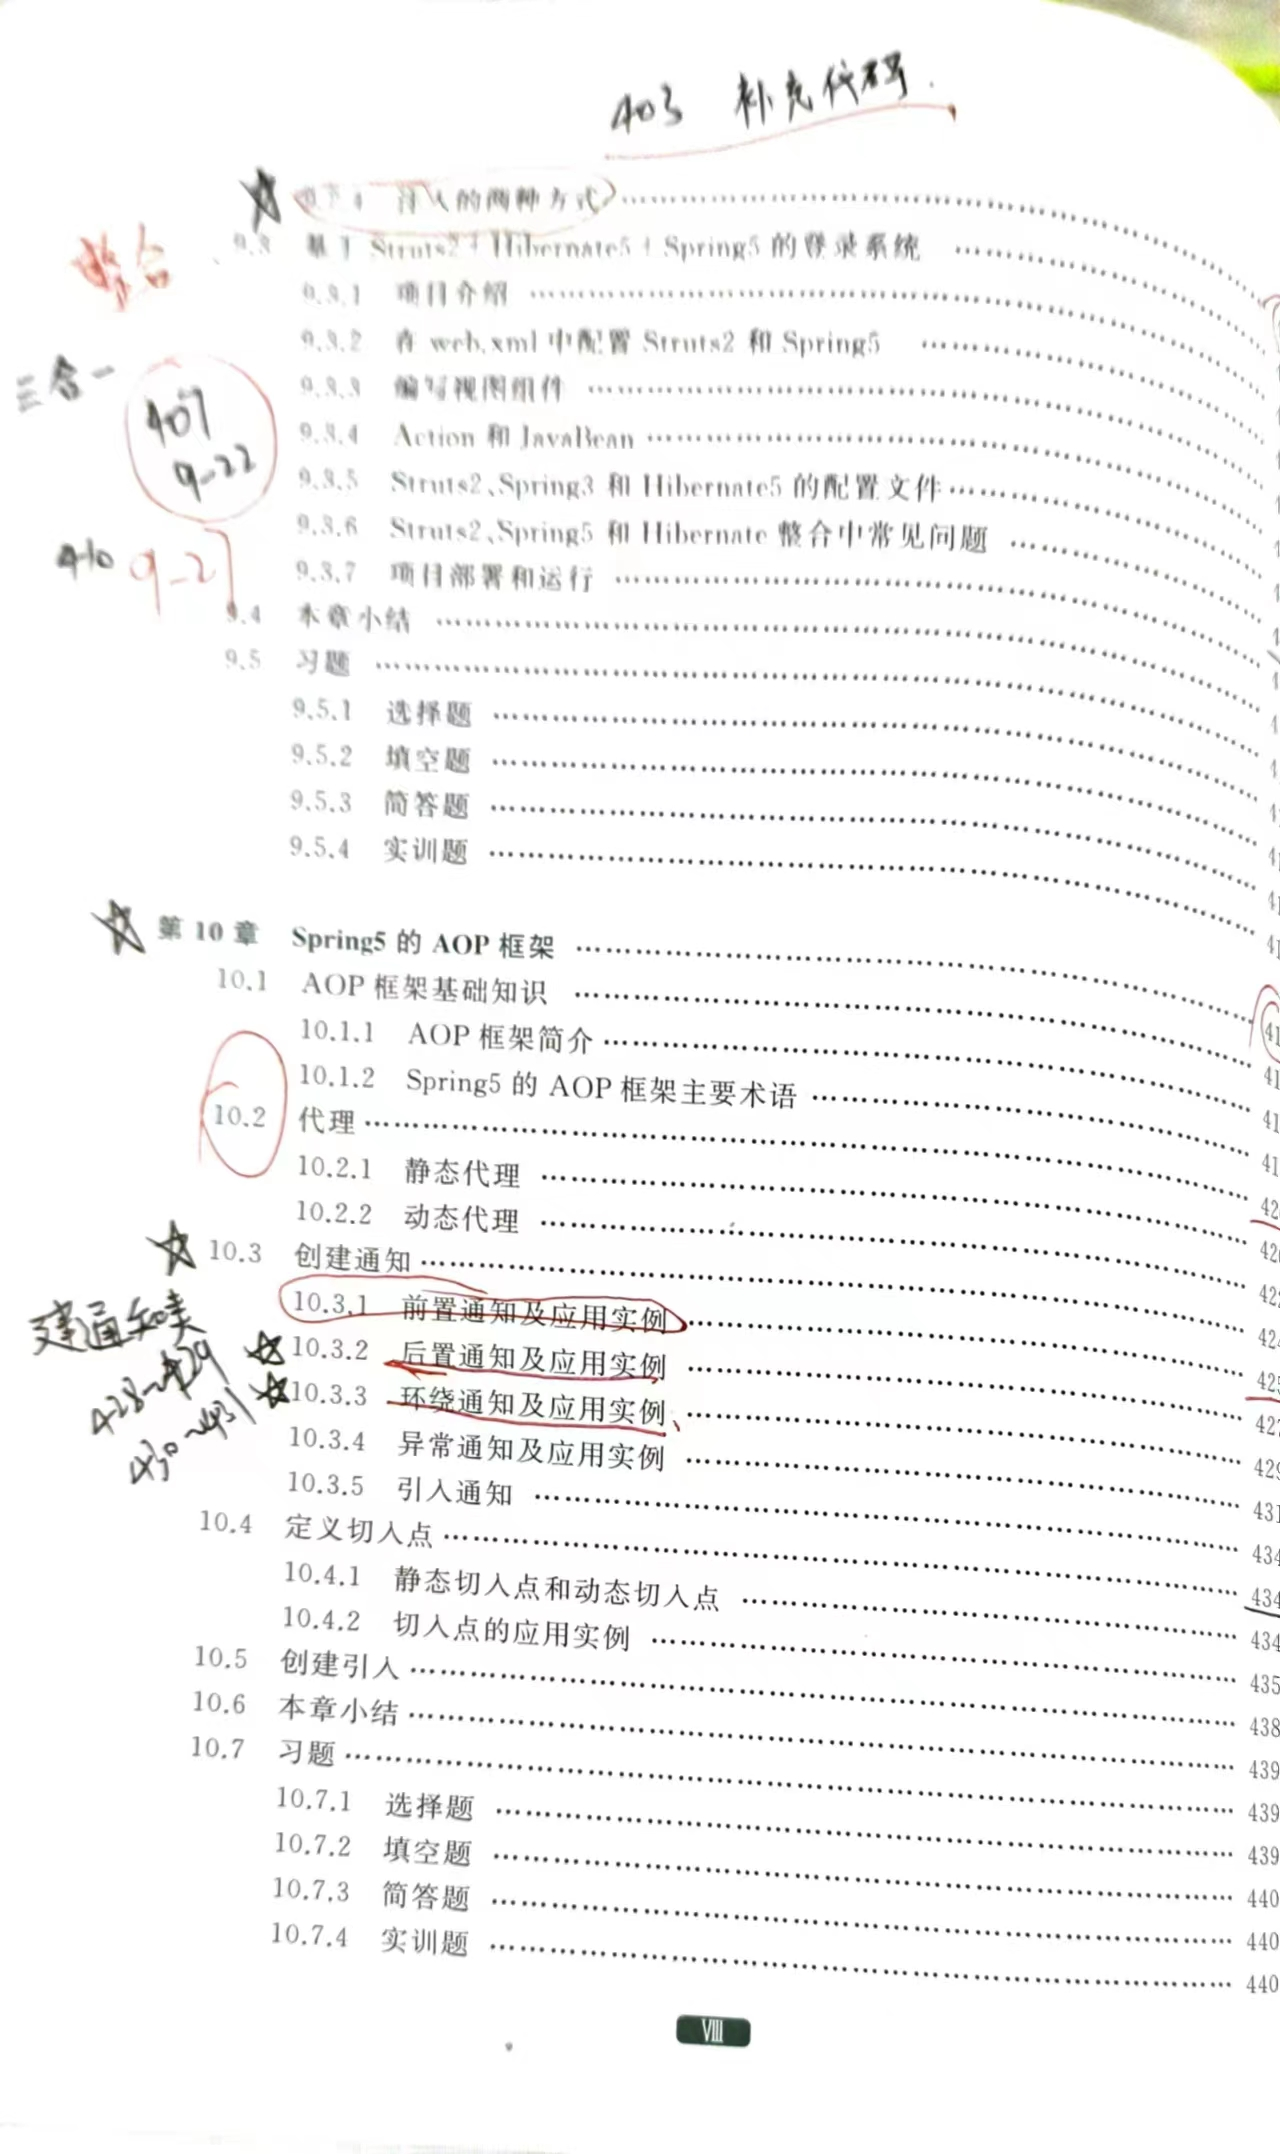 403 补充代码.
注入的两种方式
整合
9.3 基于 Struts2+Hibernate5+Spring5 的登录系统
9.3.1 项目介绍
9.3.2 在 web.xml 中配置 Struts2 和 Spring5
三合一
9.3.3 编写视图组件
407
9-22
9.3.4 Action 和 JavaBean
9.3.5 Struts2、Spring3 和 Hibernate5 的配置文件
9.3.6 Struts2、Spring5 和 Hibernate 整合中常见问题
410 9-27
9.3.7 项目部署和运行
9.4 本章小结
9.5 习题
9.5.1 选择题
9.5.2 填空题
9.5.3 简答题
9.5.4 实训题
第 10 章 Spring5 的 AOP 框架
10.1 AOP 框架基础知识
10.1.1 AOP 框架简介
10.1.2 Spring5 的 AOP 框架主要术语
10.2 代理
10.2.1 静态代理
10.2.2 动态代理
10.3 创建通知
10.3.1 前置通知及应用实例
建通知类
10.3.2 后置通知及应用实例
428~429
10.3.3 环绕通知及应用实例
430~431
10.3.4 异常通知及应用实例 429
10.3.5 引入通知 431
10.4 定义切入点 434
10.4.1 静态切入点和动态切入点 434
10.4.2 切入点的应用实例 434
10.5 创建引入 435
10.6 本章小结 438
10.7 习题 439
10.7.1 选择题 439
10.7.2 填空题 439
10.7.3 简答题 440
10.7.4 实训题 440
440
VIII